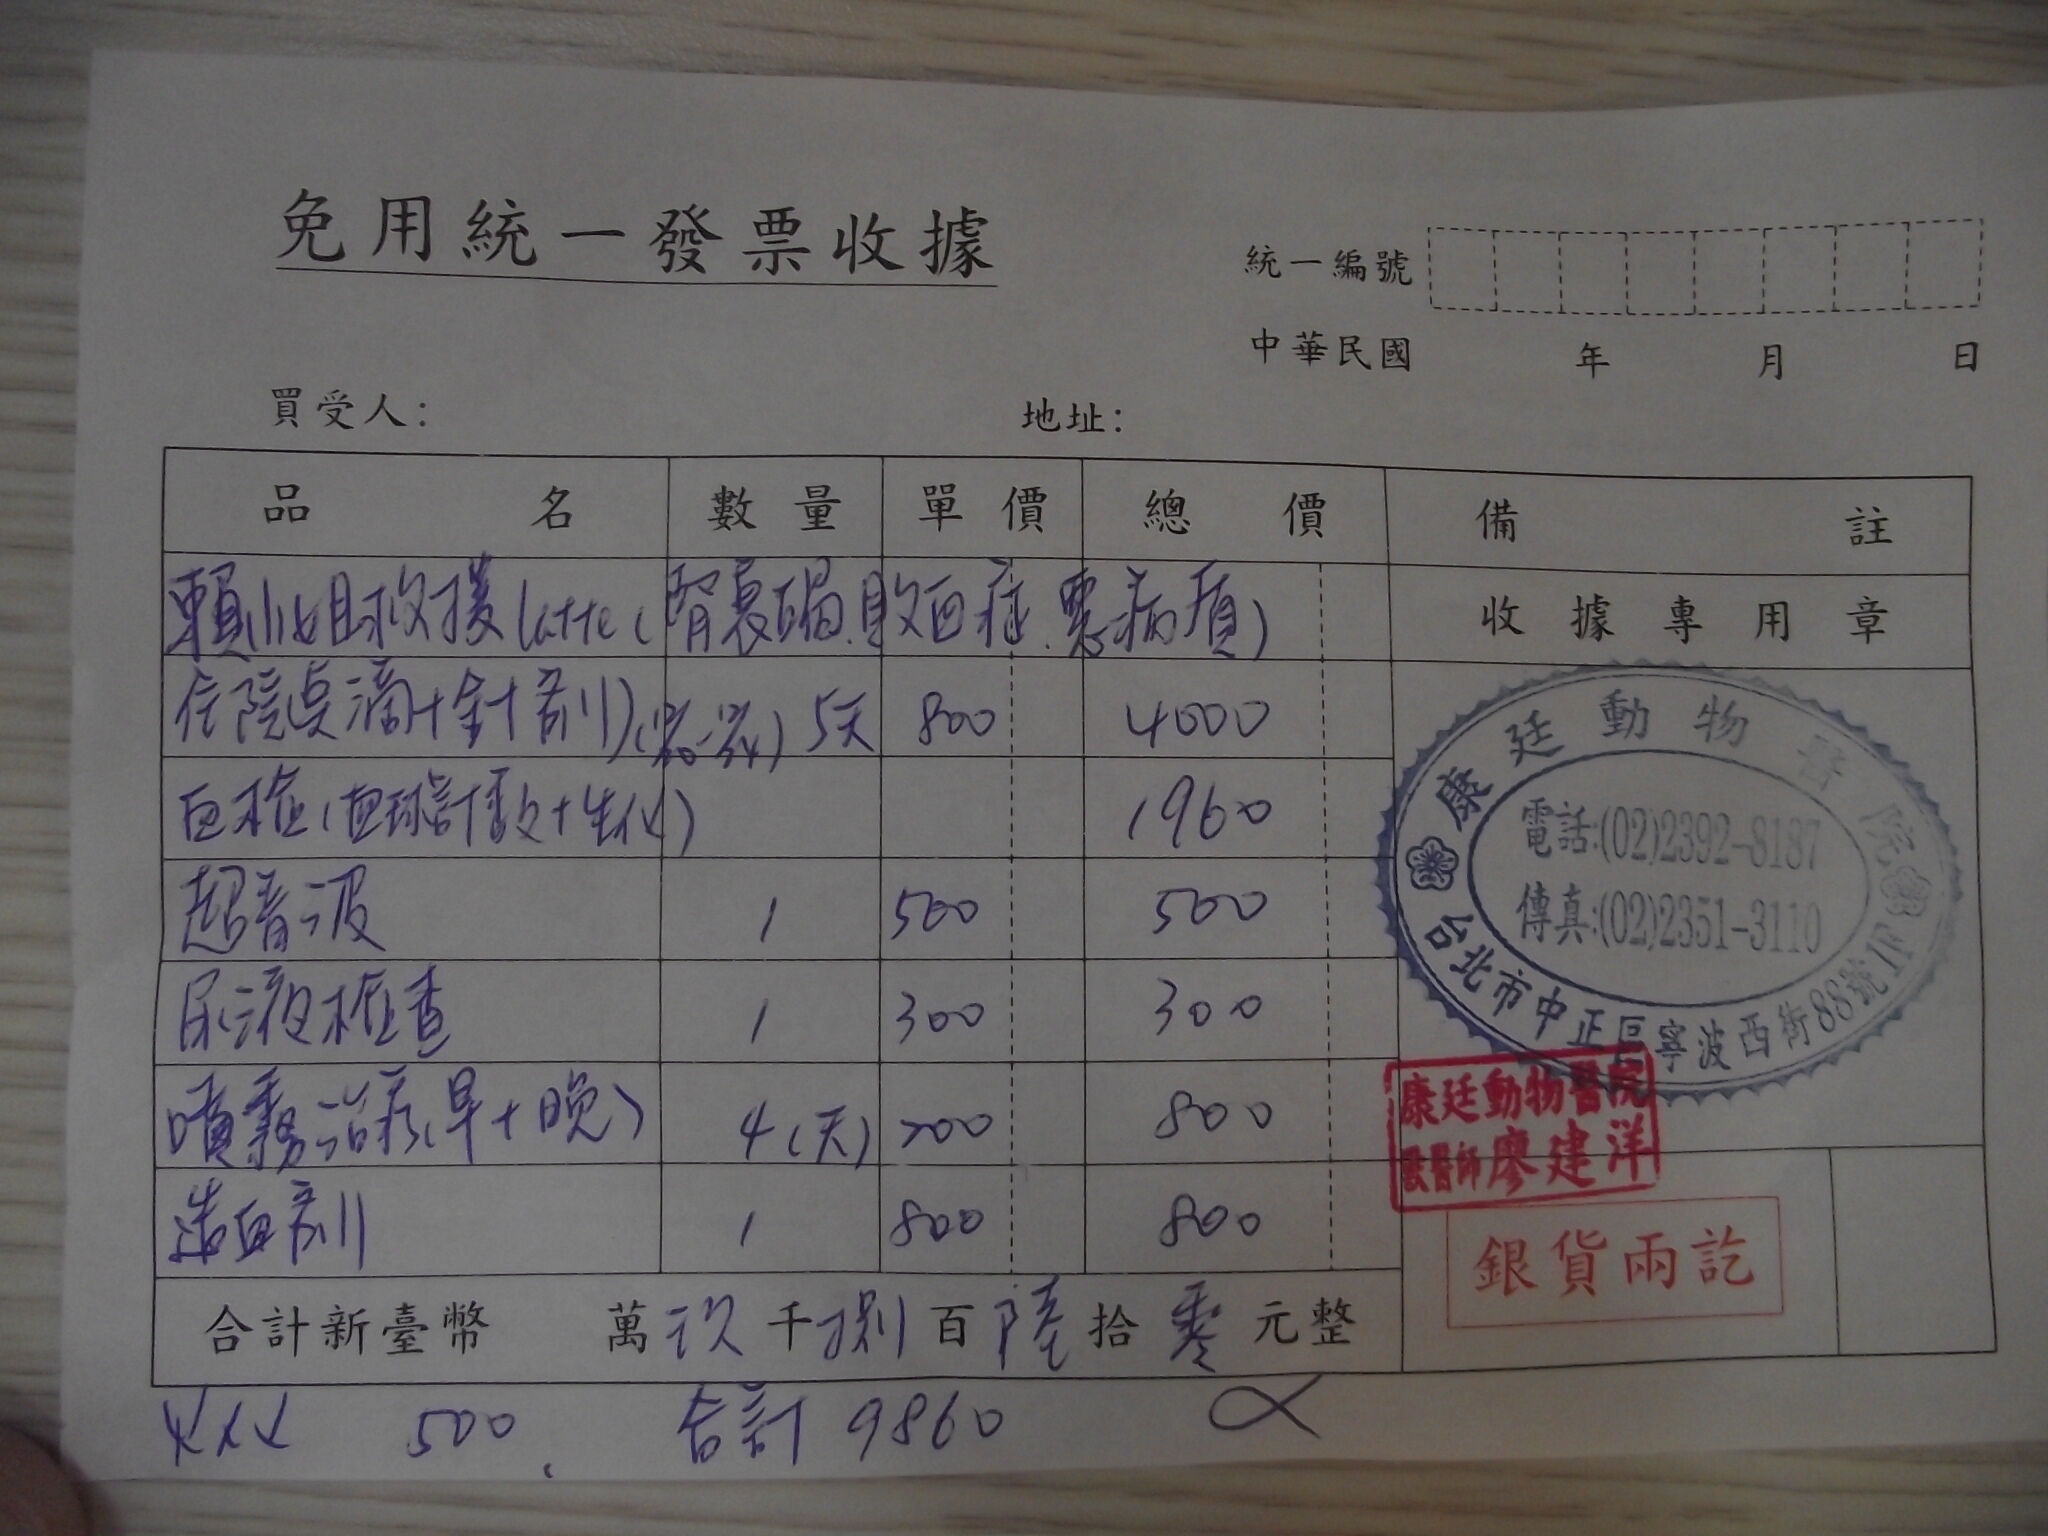 免用統一發票收據
統一編號
中華民國 年 月 日
買受人: 地址:
品名 數量 單價 總價 備註
賴小姐救援Latte(腎衰竭.敗血症.惡病質) 收據專用章
住院點滴+針劑 5天 800 4000
血檢(血球計數+生化) 1960
超音波 1 500 500
尿液檢查 1 300 300
噴霧治療(早+晚) 4(天) 200 800
造血劑 1 800 800
合計新臺幣 萬 玖 千 捌 百 陸 拾 零 元整
500 合計 9860
康廷動物醫院
電話:(02)2392-8187
傳真:(02)2351-3110
台北市中正區寧波西街88號1F
康廷動物醫院
獸醫師廖建洋
銀貨兩訖